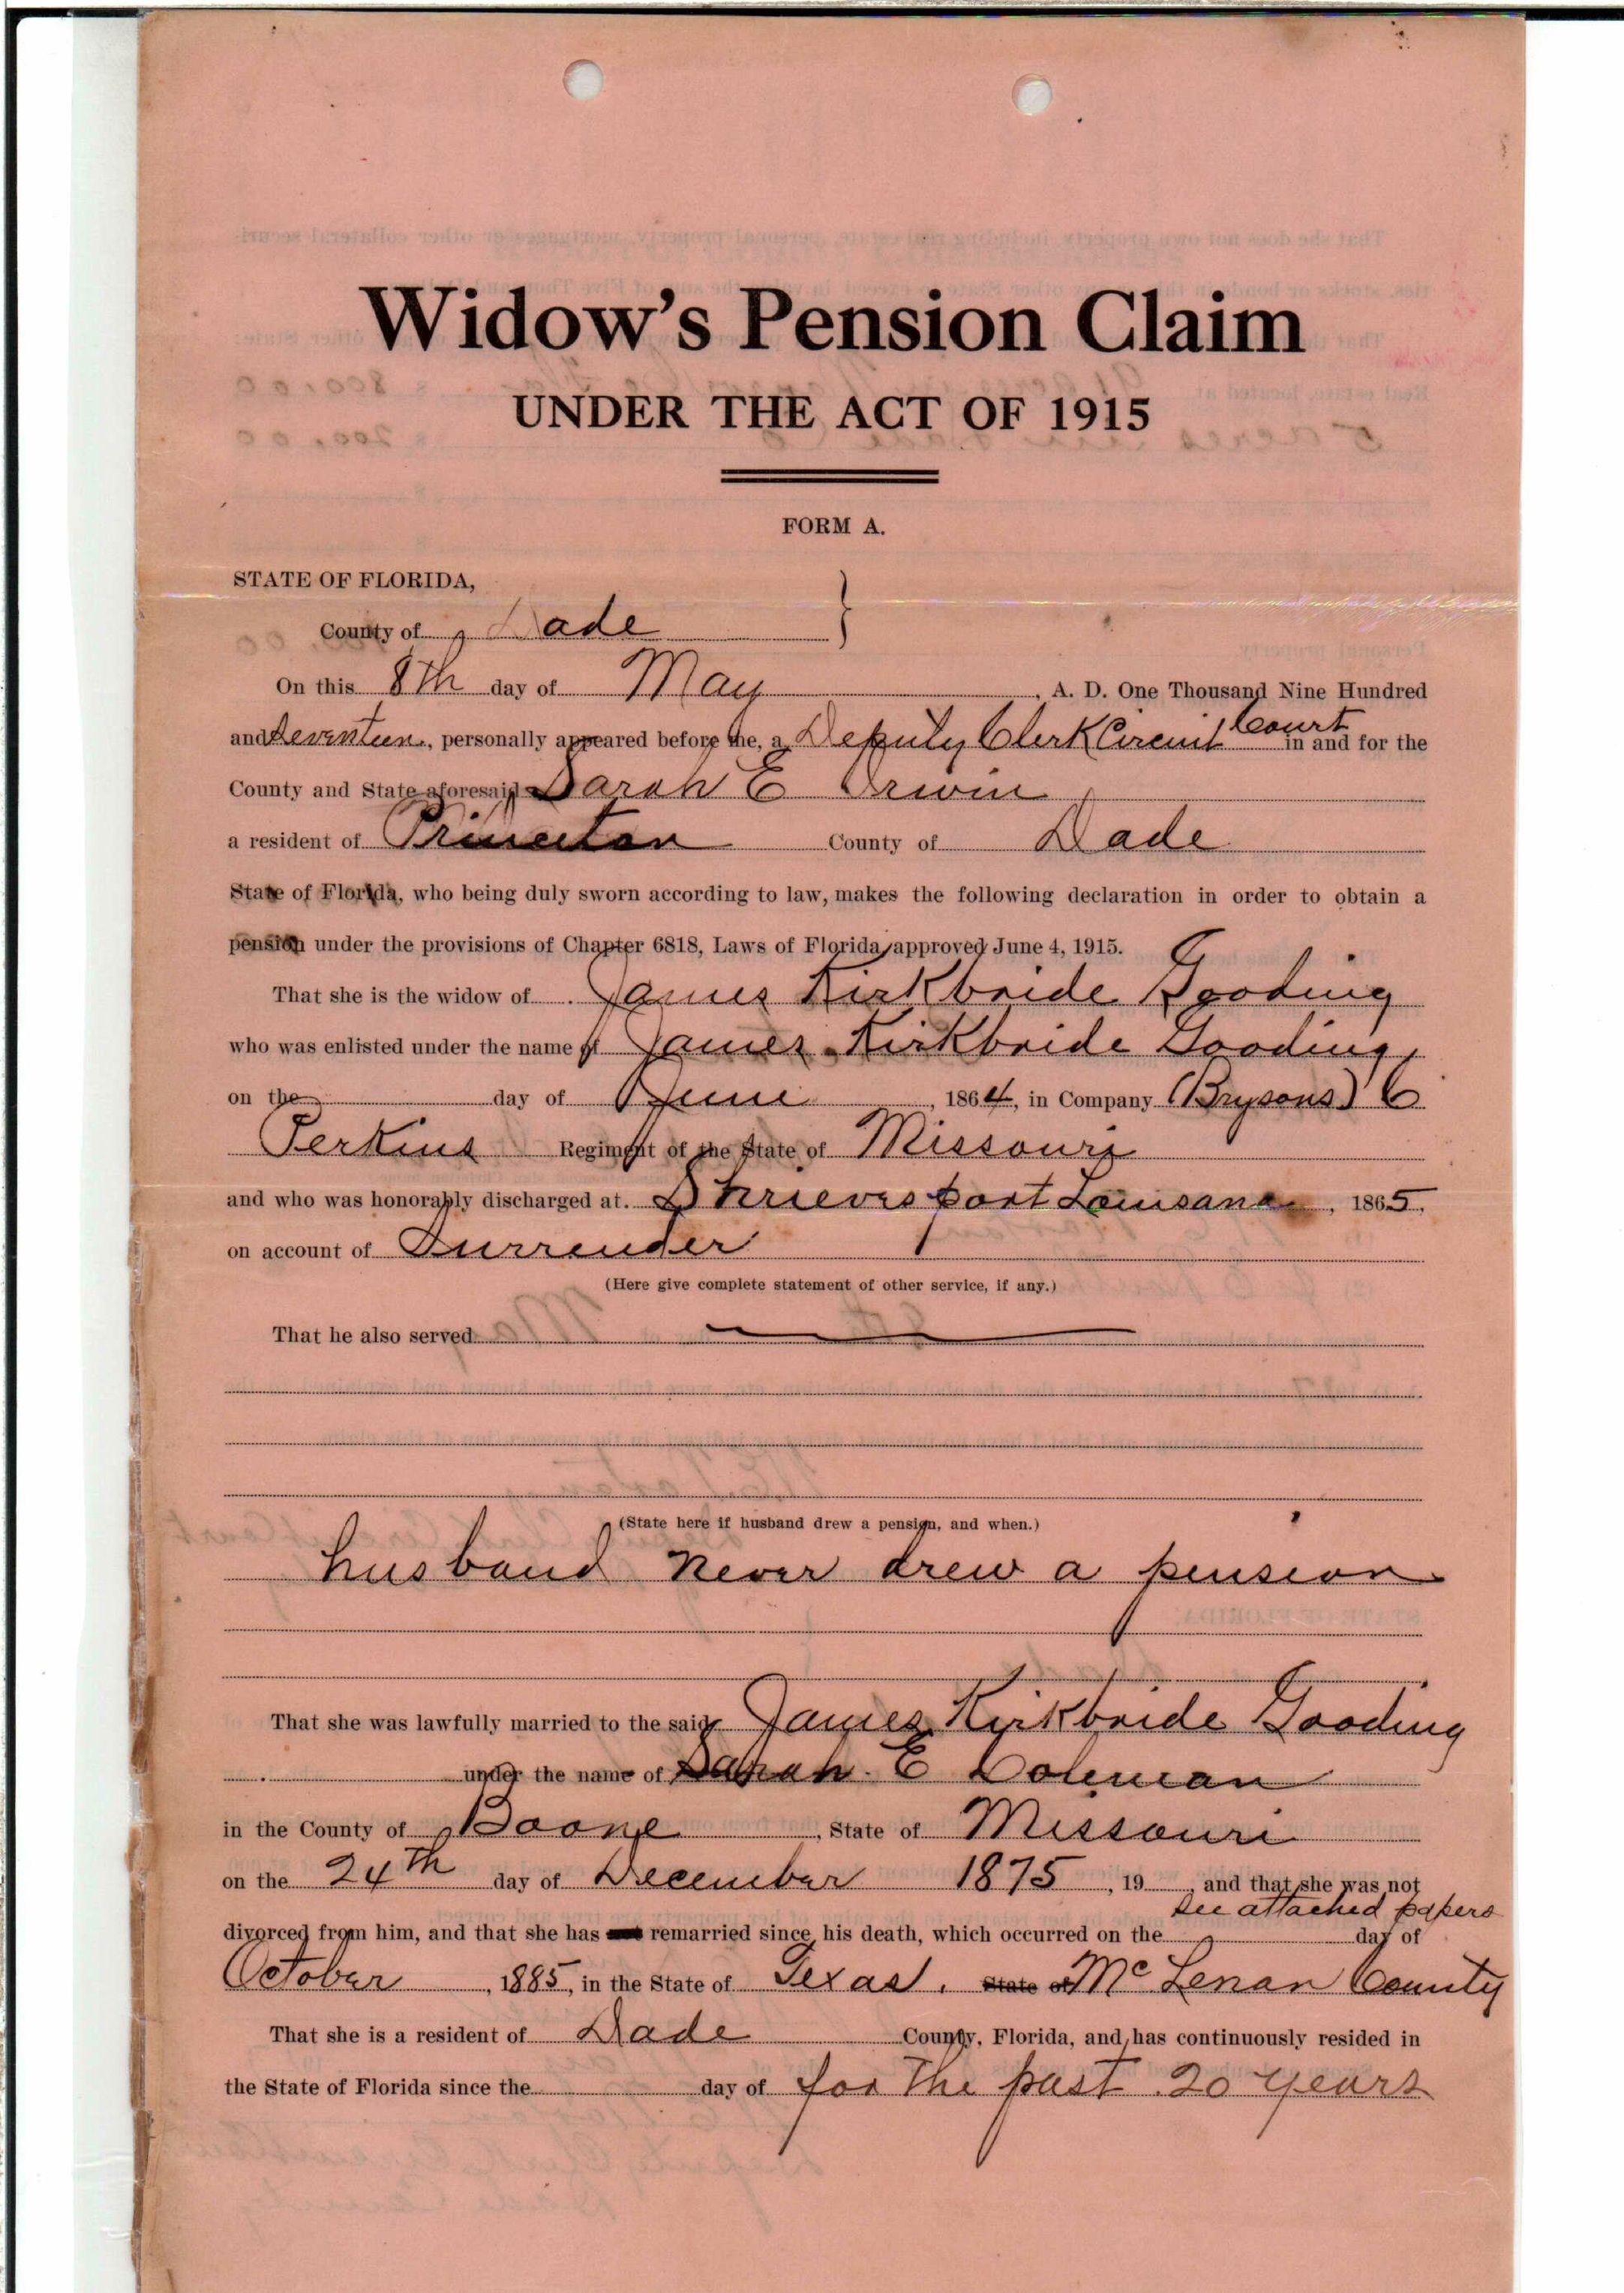 Widow's Pension Claim
UNDER THE ACT OF 1915
FORM A.
STATE OF FLORIDA,
County of Dade }
On this 8th day of May , A. D. One Thousand Nine Hundred
and Seventeen, personally appeared before me, a Deputy Clerk Circuit Court in and for the
County and State aforesaid Sarah E Irwin
a resident of Princeton County of Dade
State of Florida, who being duly sworn according to law, makes the following declaration in order to obtain a
pension under the provisions of Chapter 6818, Laws of Florida, approved June 4, 1915.
That she is the widow of James Kirkbride Gooding
who was enlisted under the name of James Kirkbride Gooding,
on the day of June , 1864, in Company (Brysons) C
Perkins Regiment of the State of Missouri
and who was honorably discharged at Shrievesport Louisana , 1865,
on account of Surrender
(Here give complete statement of other service, if any.)
That he also served
(State here if husband drew a pension, and when.)
husband never drew a pension
That she was lawfully married to the said James Kirkbride Gooding
under the name of Sarah E Coleman
in the County of Boone , State of Missouri
on the 24th day of December 1875 , 19 , and that she was not
See attached papers
divorced from him, and that she has remarried since his death, which occurred on the day of
October , 1885, in the State of Texas. State of McLenan County
That she is a resident of Dade County, Florida, and has continuously resided in
the State of Florida since the day of for the past 20 years